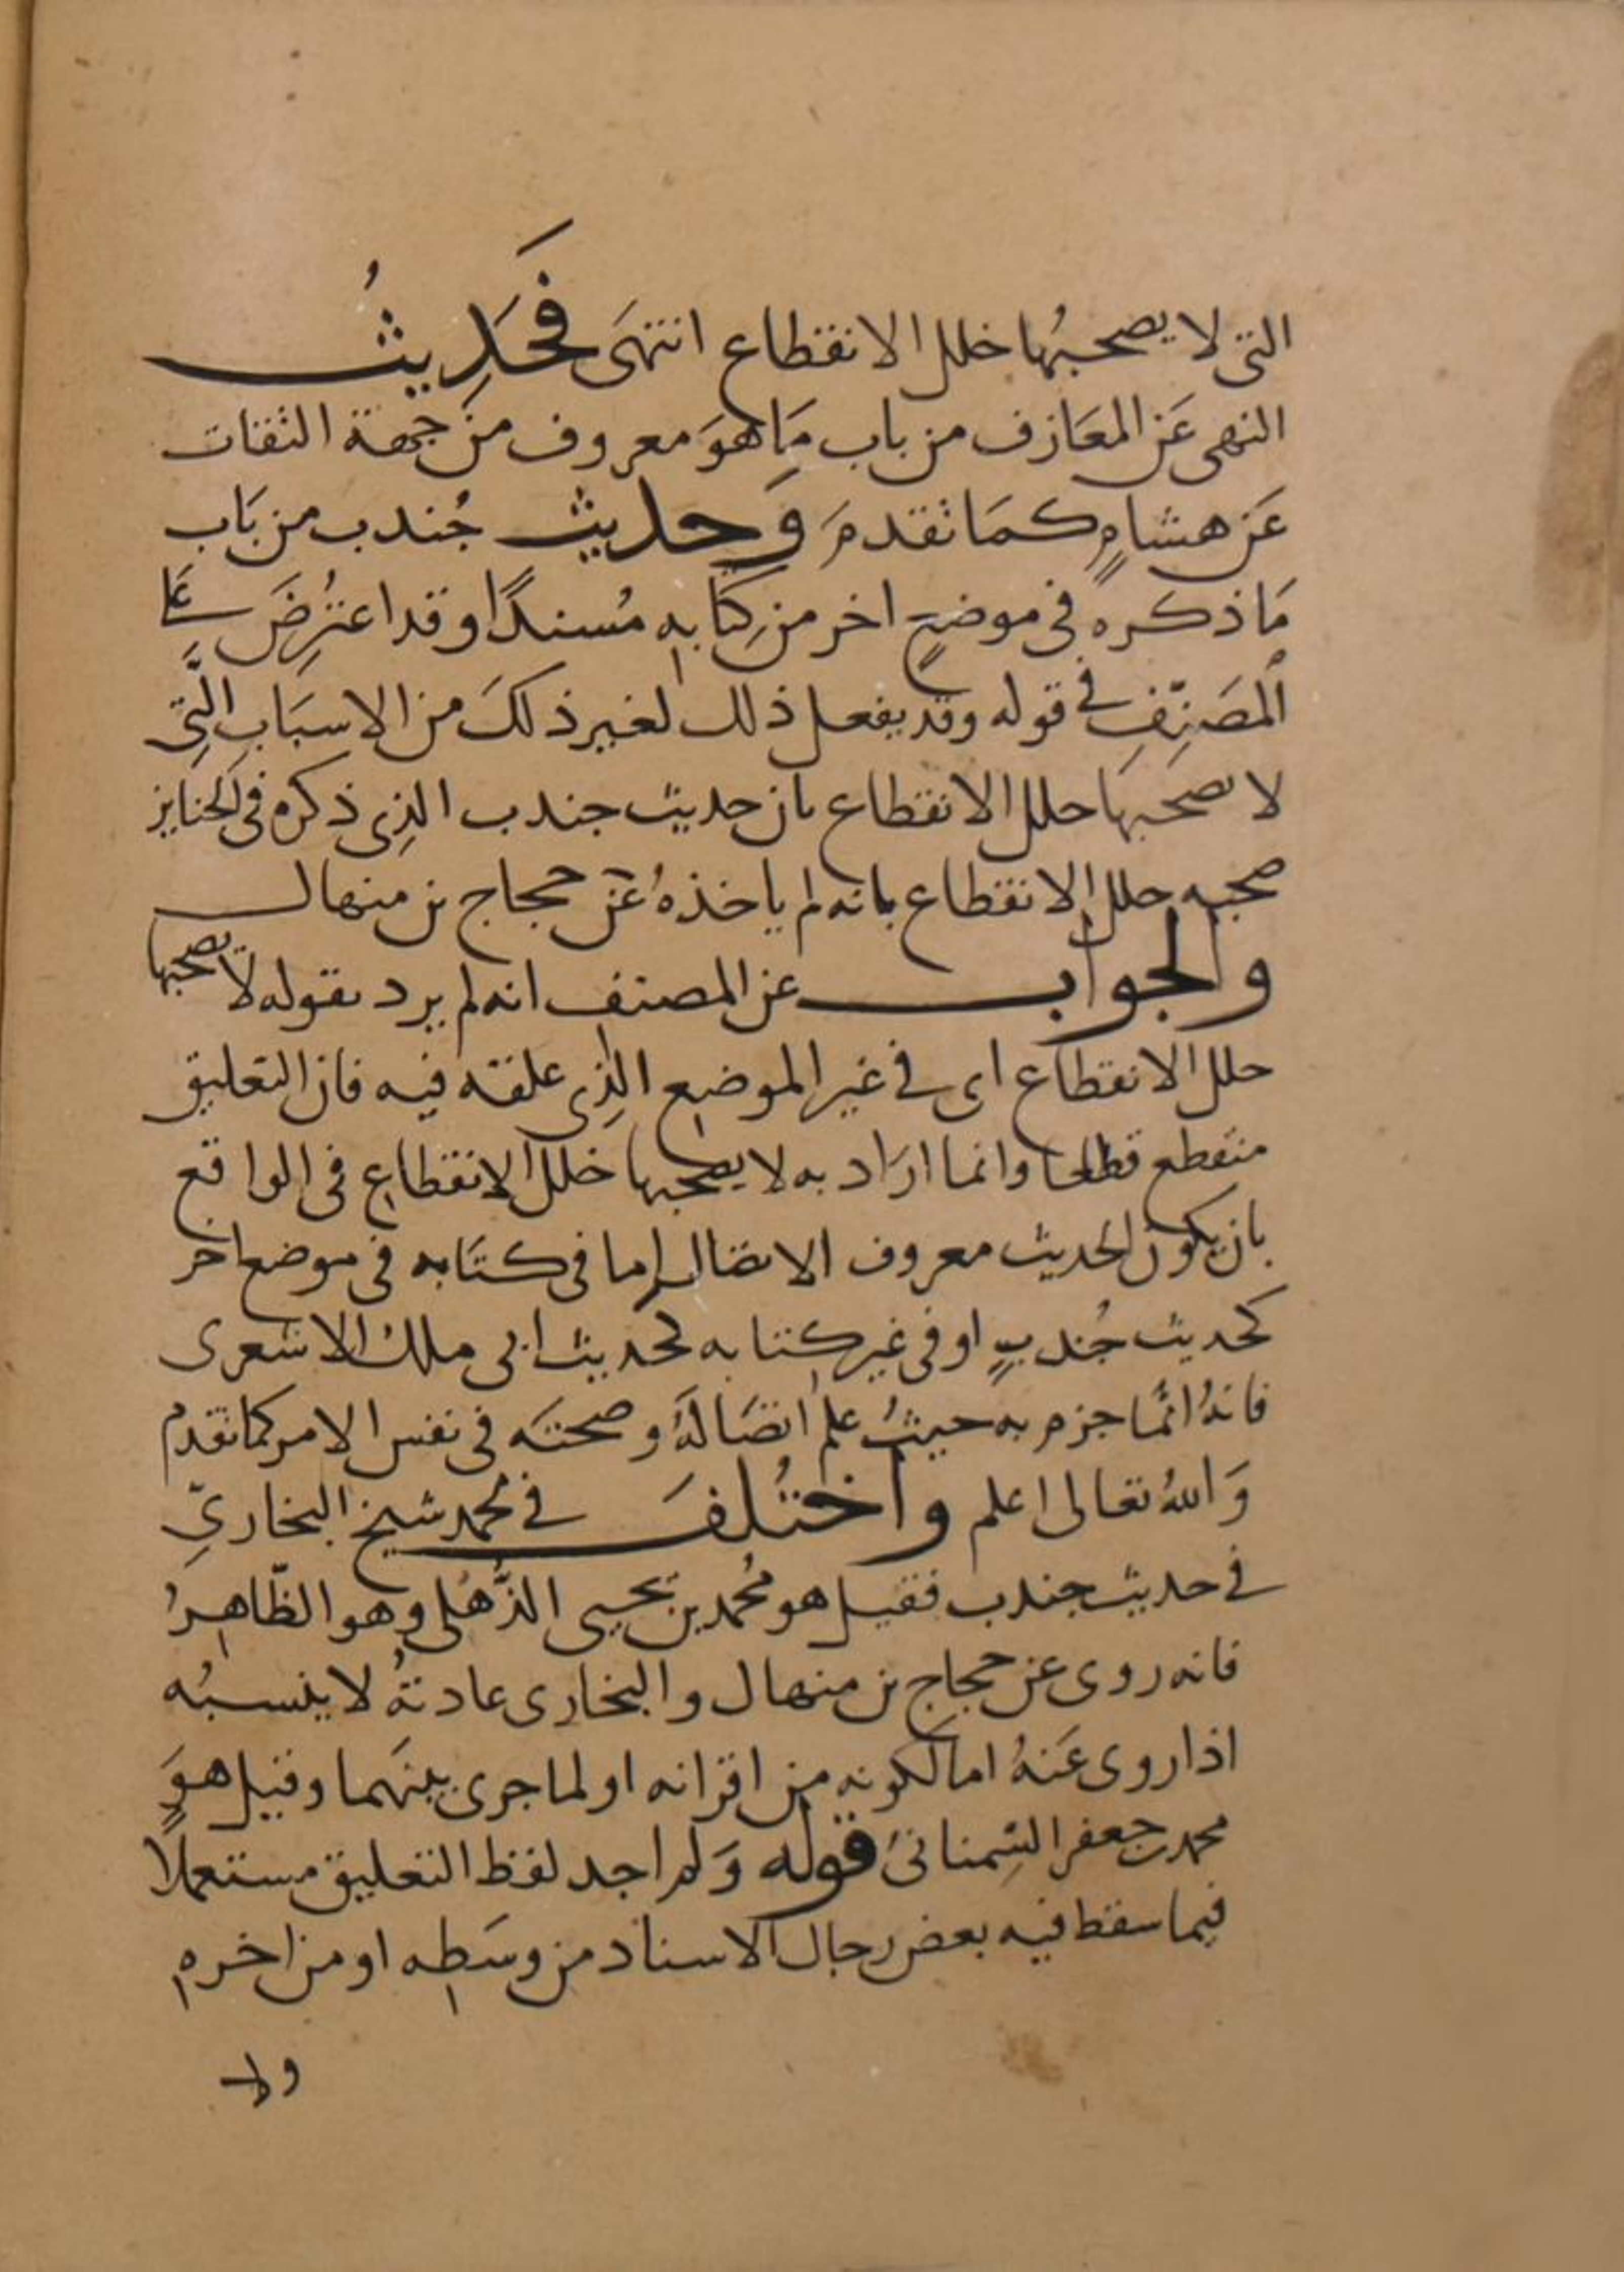 التى لا يصحبُها خلل الانقطاع انتهَى فَحَدِيثُ
النهى عَن المعَازف من باب مَا هوَ معروف من جهة الثقات
عَن هشامٍ كمَا تقدمَ وَحديث جُندب من بَاب
مَا ذكره فى موضعٍ اخر من كِتَابِه مُسندًا وقد اعتُرِضَ عَلَى
المصَنِّفِ فى قوله وقد يفعل ذلك لغير ذلكَ من الاسبَابِ الَّتِى
لا يصحَبهَا خلل الانقطاع بان حديث جندب الذِى ذكره فى الجنايز
صحبه خلل الانقطاع بانه لم ياخذهُ عَن حجاج بن منهال
والجواب عن المصنف انه لم يرد بقوله لا يصحبها
خلل الانقطاع اى فى غير الموضع الذِى علقه فيه فان التعليق
منقطع قطعا وانما ارَاد به لا يصحبها خلل الانقطاع فى الواقع
بان يكون الحديث معروف الاتصال اما فى كتَابه فى موضع اخر
كحديث جُندبٍ او فى غير كتابه كحديث ابى ملك الاشعرى
فانهُ انمَّا جزم به حيثُ علم اتصَالهُ وصحتَه فى نفس الامر كما تقدم
وَاللهُ تعالى اعلم واختُلفَ فى محمد شيخ البخارىِّ
فى حديث جندب فقيل هو مُحمد بن يحيى الذُّهْلى وهو الظَّاهِرُ
فانه روى عن حجاج بن منهال والبخارى عادتهُ لا ينسبُه
اذا روى عَنهُ اما لكونه من اقرانه او لما جرى بينَهما وقيل هوَ
محمد بن جعفر السِّمنانىُ قوله وَلم اجد لفظ التعليق مستعملًا
فيما سقط فيه بعض رجال الاسناد من وسَطِه او من اخرهِ
ولا